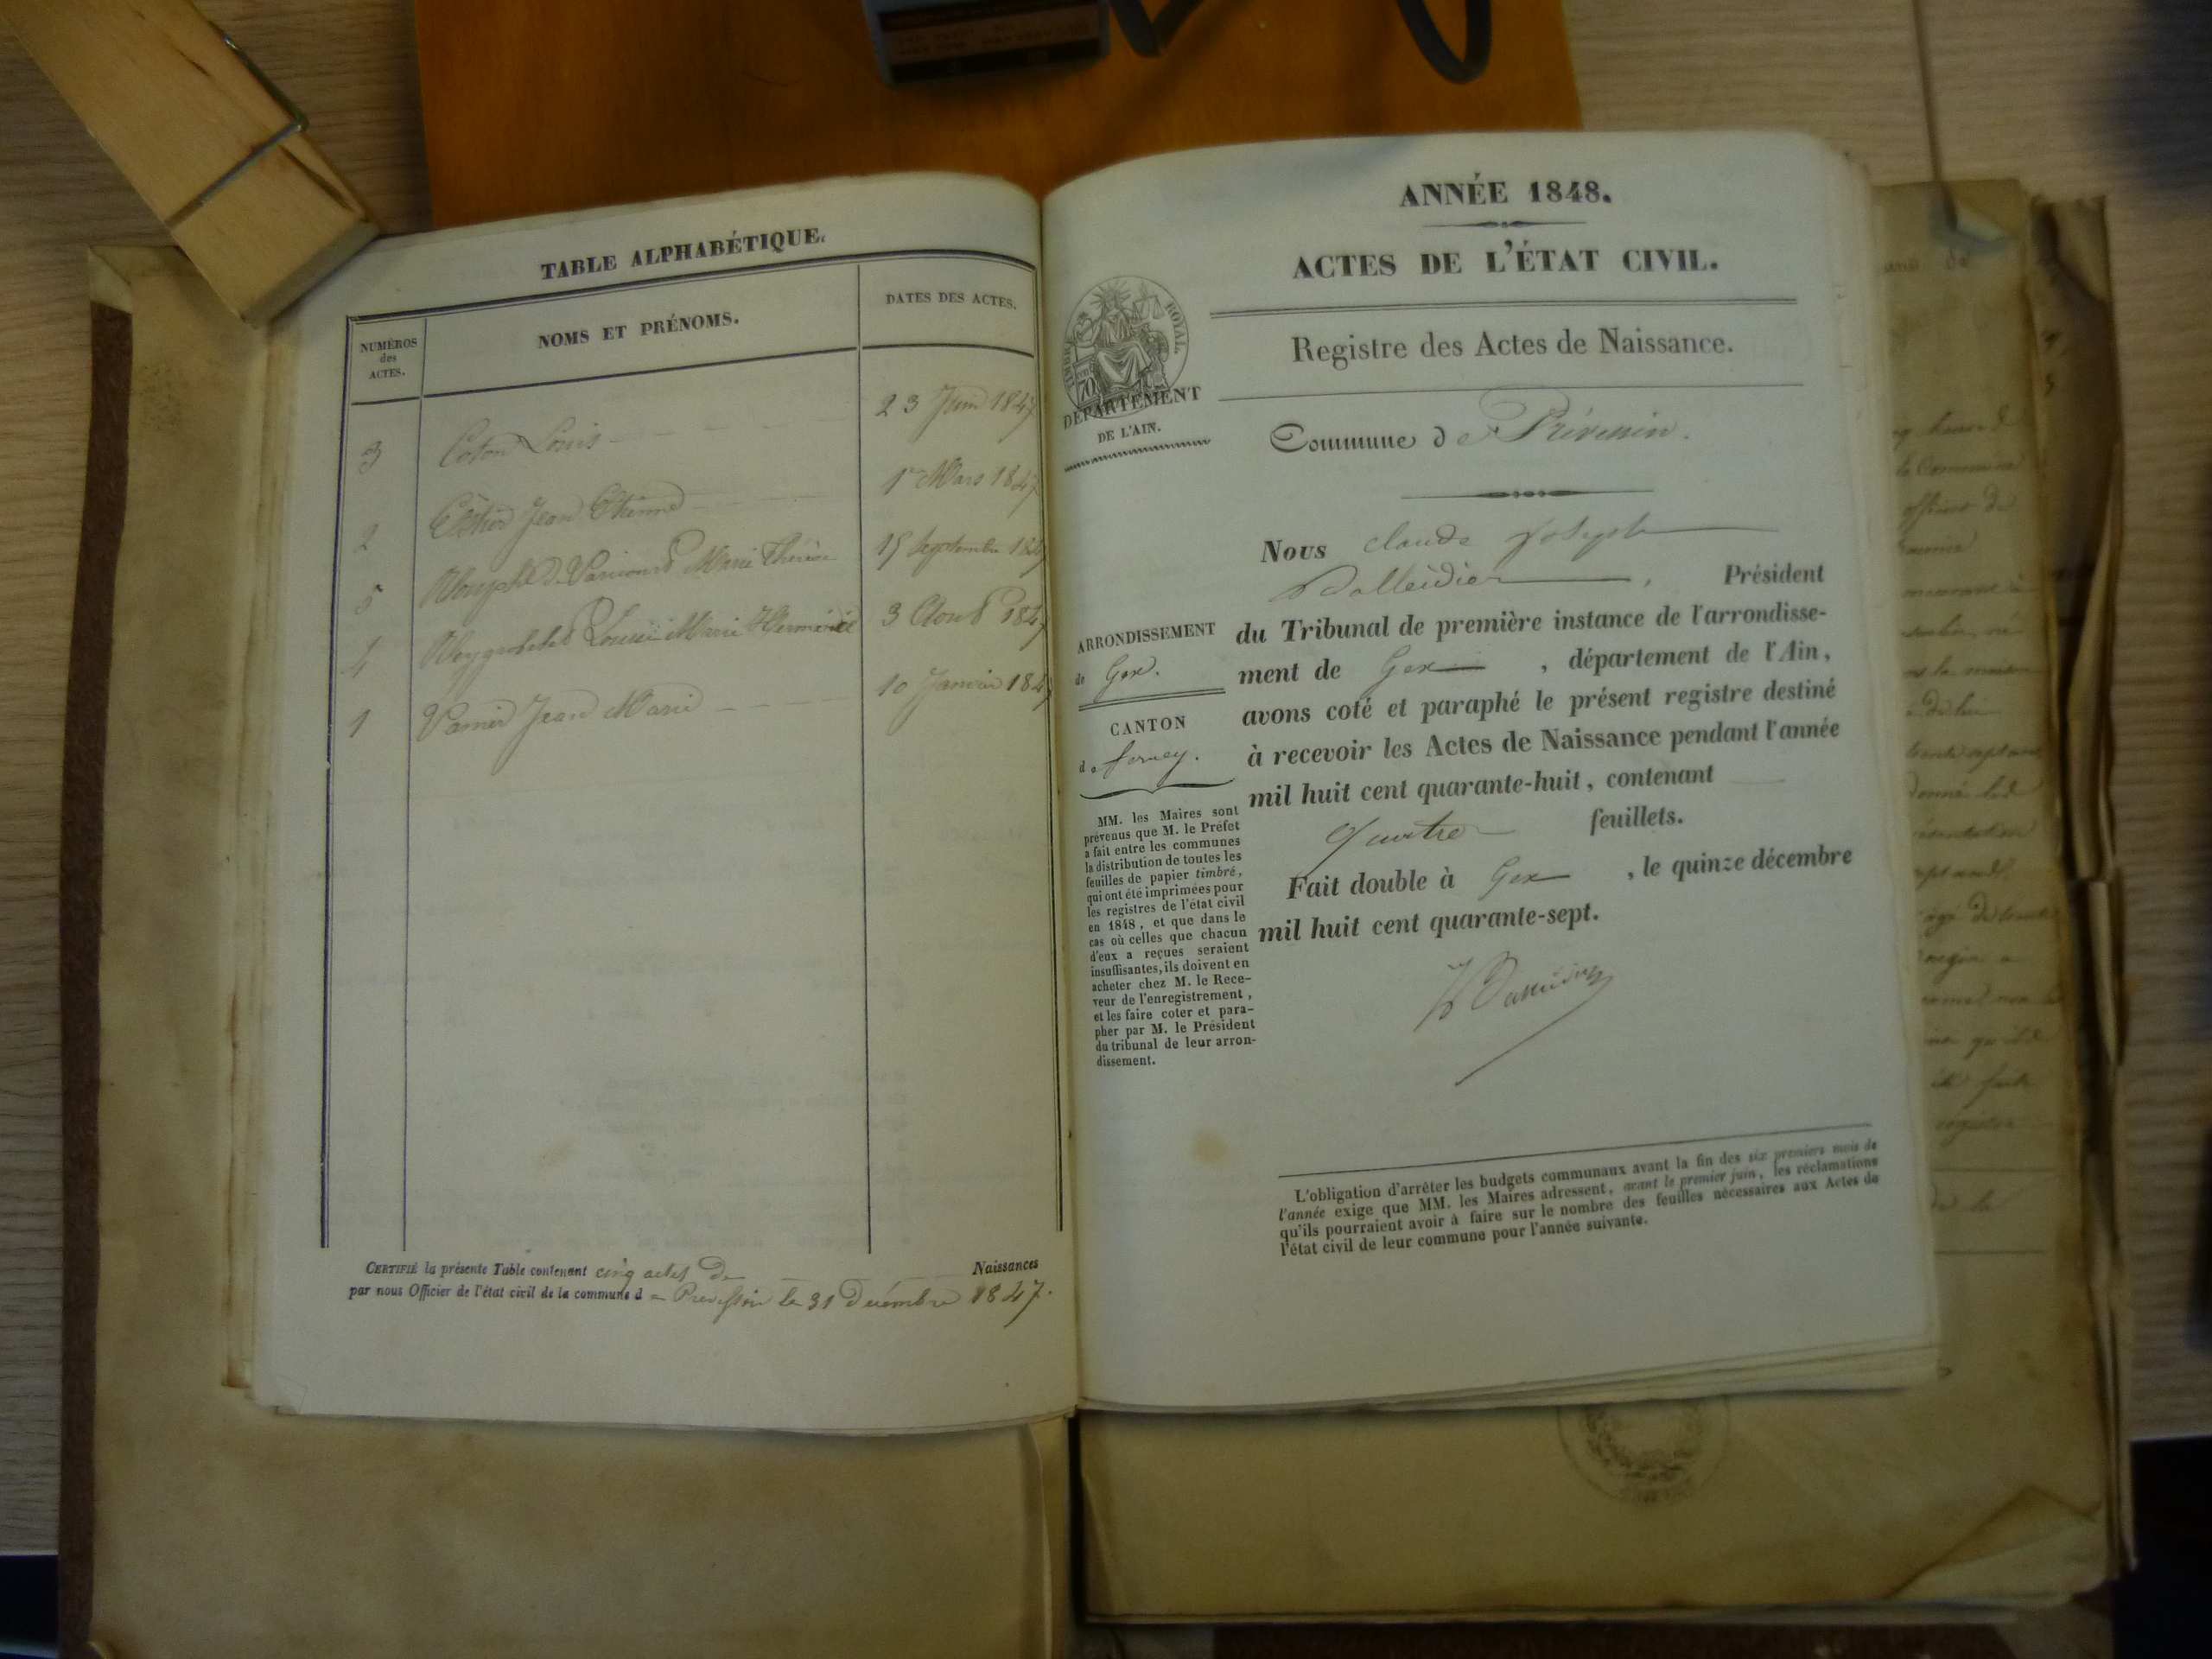 TABLE ALPHABÉTIQUE.
NUMÉROS des ACTES.
NOMS ET PRÉNOMS.
DATES DES ACTES.
3 Coton Louis 23 Juin 1847
2 Jean Etienne 1er Mars 1847
5 Marie Thérèse 15 Septembre 1847
4 Marie 3 Août 1847
1 Jean Marie 10 Janvier 1847
CERTIFIÉ la présente Table contenant cinq actes de Naissances
par nous Officier de l'état civil de la commune de le 31 Décembre 1847.
ANNÉE 1848.
ACTES DE L'ÉTAT CIVIL.
TIMBRE ROYAL
70
DÉPARTEMENT
DE L'AIN.
Registre des Actes de Naissance.
Commune de Prévessin.
Nous Claude Joseph
, Président
du Tribunal de première instance de l'arrondisse-
ment de Gex , département de l'Ain,
avons coté et paraphé le présent registre destiné
à recevoir les Actes de Naissance pendant l'année
mil huit cent quarante-huit, contenant
quatre feuillets.
Fait double à Gex , le quinze décembre
mil huit cent quarante-sept.
ARRONDISSEMENT
de Gex.
CANTON
de ferney.
MM. les Maires sont
prévenus que M. le Préfet
a fait entre les communes
la distribution de toutes les
feuilles de papier timbré,
qui ont été imprimées pour
les registres de l'état civil
en 1848, et que dans le
cas où celles que chacun
d'eux a reçues seraient
insuffisantes, ils doivent en
acheter chez M. le Rece-
veur de l'enregistrement,
et les faire coter et para-
pher par M. le Président
du tribunal de leur arron-
dissement.
L'obligation d'arrêter les budgets communaux avant la fin des six premiers mois de
l'année exige que MM. les Maires adressent, avant le premier juin, les réclamations
qu'ils pourraient avoir à faire sur le nombre des feuilles nécessaires aux Actes de
l'état civil de leur commune pour l'année suivante.